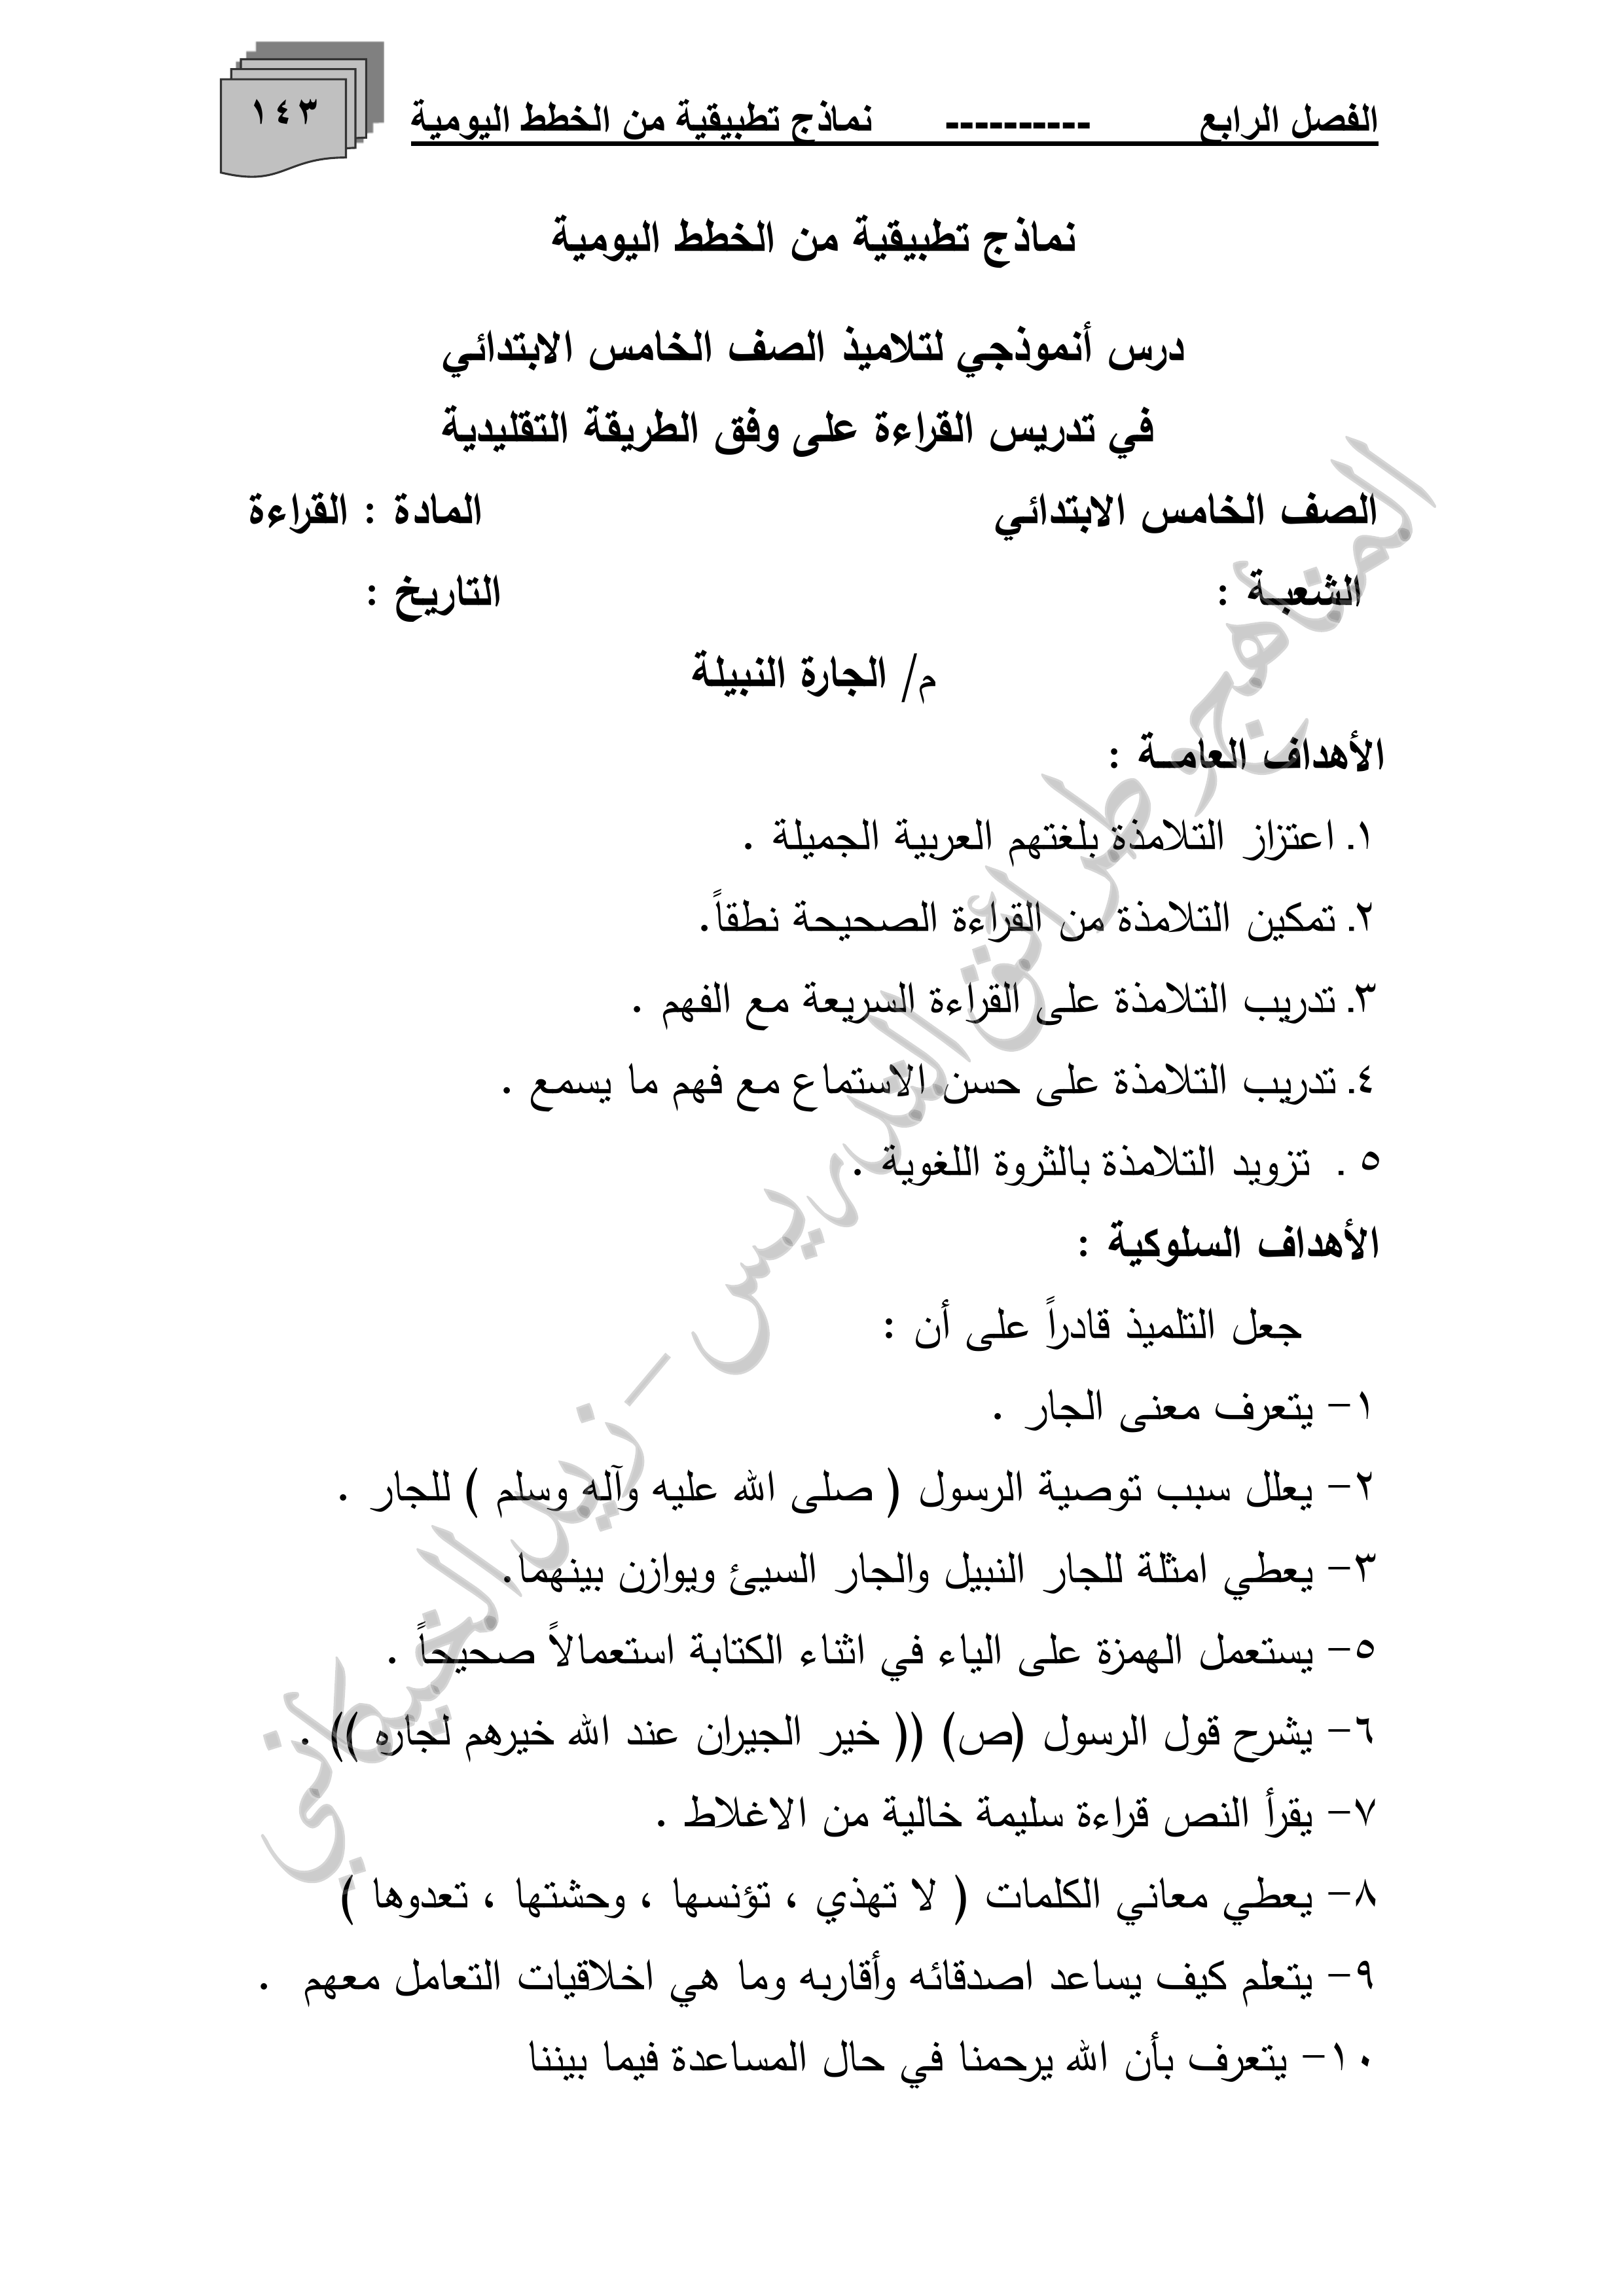 الفصل الرابع ---------- نماذج تطبيقية من الخطط اليومية
١٤٣
نماذج تطبيقية من الخطط اليومية
درس أنموذجي لتلاميذ الصف الخامس الابتدائي
في تدريس القراءة على وفق الطريقة التقليدية
الصف الخامس الابتدائي المادة : القراءة
الشعبــة : التاريخ :
م/ الجارة النبيلة
الأهداف العامــة :
١. اعتزاز التلامذة بلغتهم العربية الجميلة .
٢. تمكين التلامذة من القراءة الصحيحة نطقاً.
٣. تدريب التلامذة على القراءة السريعة مع الفهم .
٤. تدريب التلامذة على حسن الاستماع مع فهم ما يسمع .
٥ . تزويد التلامذة بالثروة اللغوية .
الأهداف السلوكية :
جعل التلميذ قادراً على أن :
١- يتعرف معنى الجار .
٢- يعلل سبب توصية الرسول ( صلى الله عليه وآله وسلم ) للجار .
٣- يعطي امثلة للجار النبيل والجار السيئ ويوازن بينهما.
٥- يستعمل الهمزة على الياء في اثناء الكتابة استعمالاً صحيحاً .
٦- يشرح قول الرسول (ص) (( خير الجيران عند الله خيرهم لجاره )) .
٧- يقرأ النص قراءة سليمة خالية من الاغلاط .
٨- يعطي معاني الكلمات ( لا تهذي ، تؤنسها ، وحشتها ، تعدوها )
٩- يتعلم كيف يساعد اصدقائه وأقاربه وما هي اخلاقيات التعامل معهم .
١٠- يتعرف بأن الله يرحمنا في حال المساعدة فيما بيننا
المناهج وطرائق التدريس - زيد الخيكاني